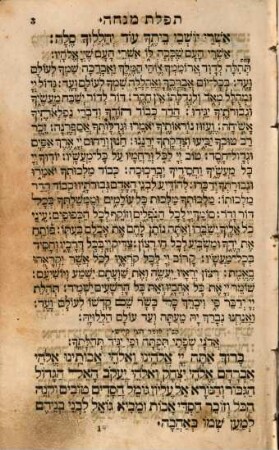 תפלת מנחה · 3
אשרי יושבי ביתך עוד יהללוך סלה:
אשרי העם שככה לו אשרי העם שיי אלהיו:
תהלה לדוד ארוממך אלהי המלך ואברכה שמך לעולם
ועד: בכל יום אברכך ואהללה שמך לעולם ועד: גדול יי
ומהלל מאד ולגדלתו אין חקר: דור לדור ישבח מעשיך
וגבורתיך יגידו: הדר כבוד הודך ודברי נפלאותיך
אשיחה: ועזוז נוראותיך יאמרו וגדולתך אספרנה: זכר
רב טובך יביעו וצדקתך ירננו: חנון ורחום יי ארך אפים
וגדל חסד: טוב יי לכל ורחמיו על כל מעשיו: יודוך יי
כל מעשיך וחסידיך יברכוכה: כבוד מלכותך יאמרו
וגבורתך ידברו: להודיע לבני האדם גבורתיו וכבוד הדר
מלכותו: מלכותך מלכות כל עולמים וממשלתך בכל
דור ודר: סומך יי לכל הנופלים וזוקף לכל הכפופים: עיני
כל אליך ישברו ואתה נותן להם את אכלם בעתו: פותח
את ידך ומשביע לכל חי רצון: צדיק יי בכל דרכיו וחסיד
בכל מעשיו: קרוב יי לכל קראיו לכל אשר יקראוהו
באמת: רצון יראיו יעשה ואת שועתם ישמע ויושיעם:
שומר יי את כל אהביו ואת כל הרשעים ישמיד: תהלת
יי ידבר פי ויברך כל בשר שם קדשו לעולם ועד:
ואנחנו נברך יה מעתה ועד עולם הללויה:
אדני שפתי תפתח ופי יגיד תהלתך:
ברוך אתה יי אלהינו ואלהי אבותינו אלהי
אברהם אלהי יצחק ואלהי יעקב האל הגדול
הגבור והנורא אל עליון גומל חסדים טובים וקנה
הכל וזוכר חסדי אבות ומביא גואל לבני בניהם
למען שמו באהבה ·